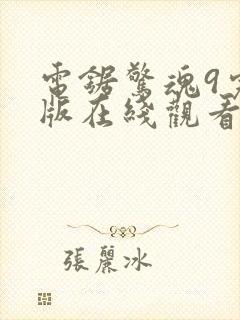 電鋸驚魂9完
版在綫觀看
張麗冰